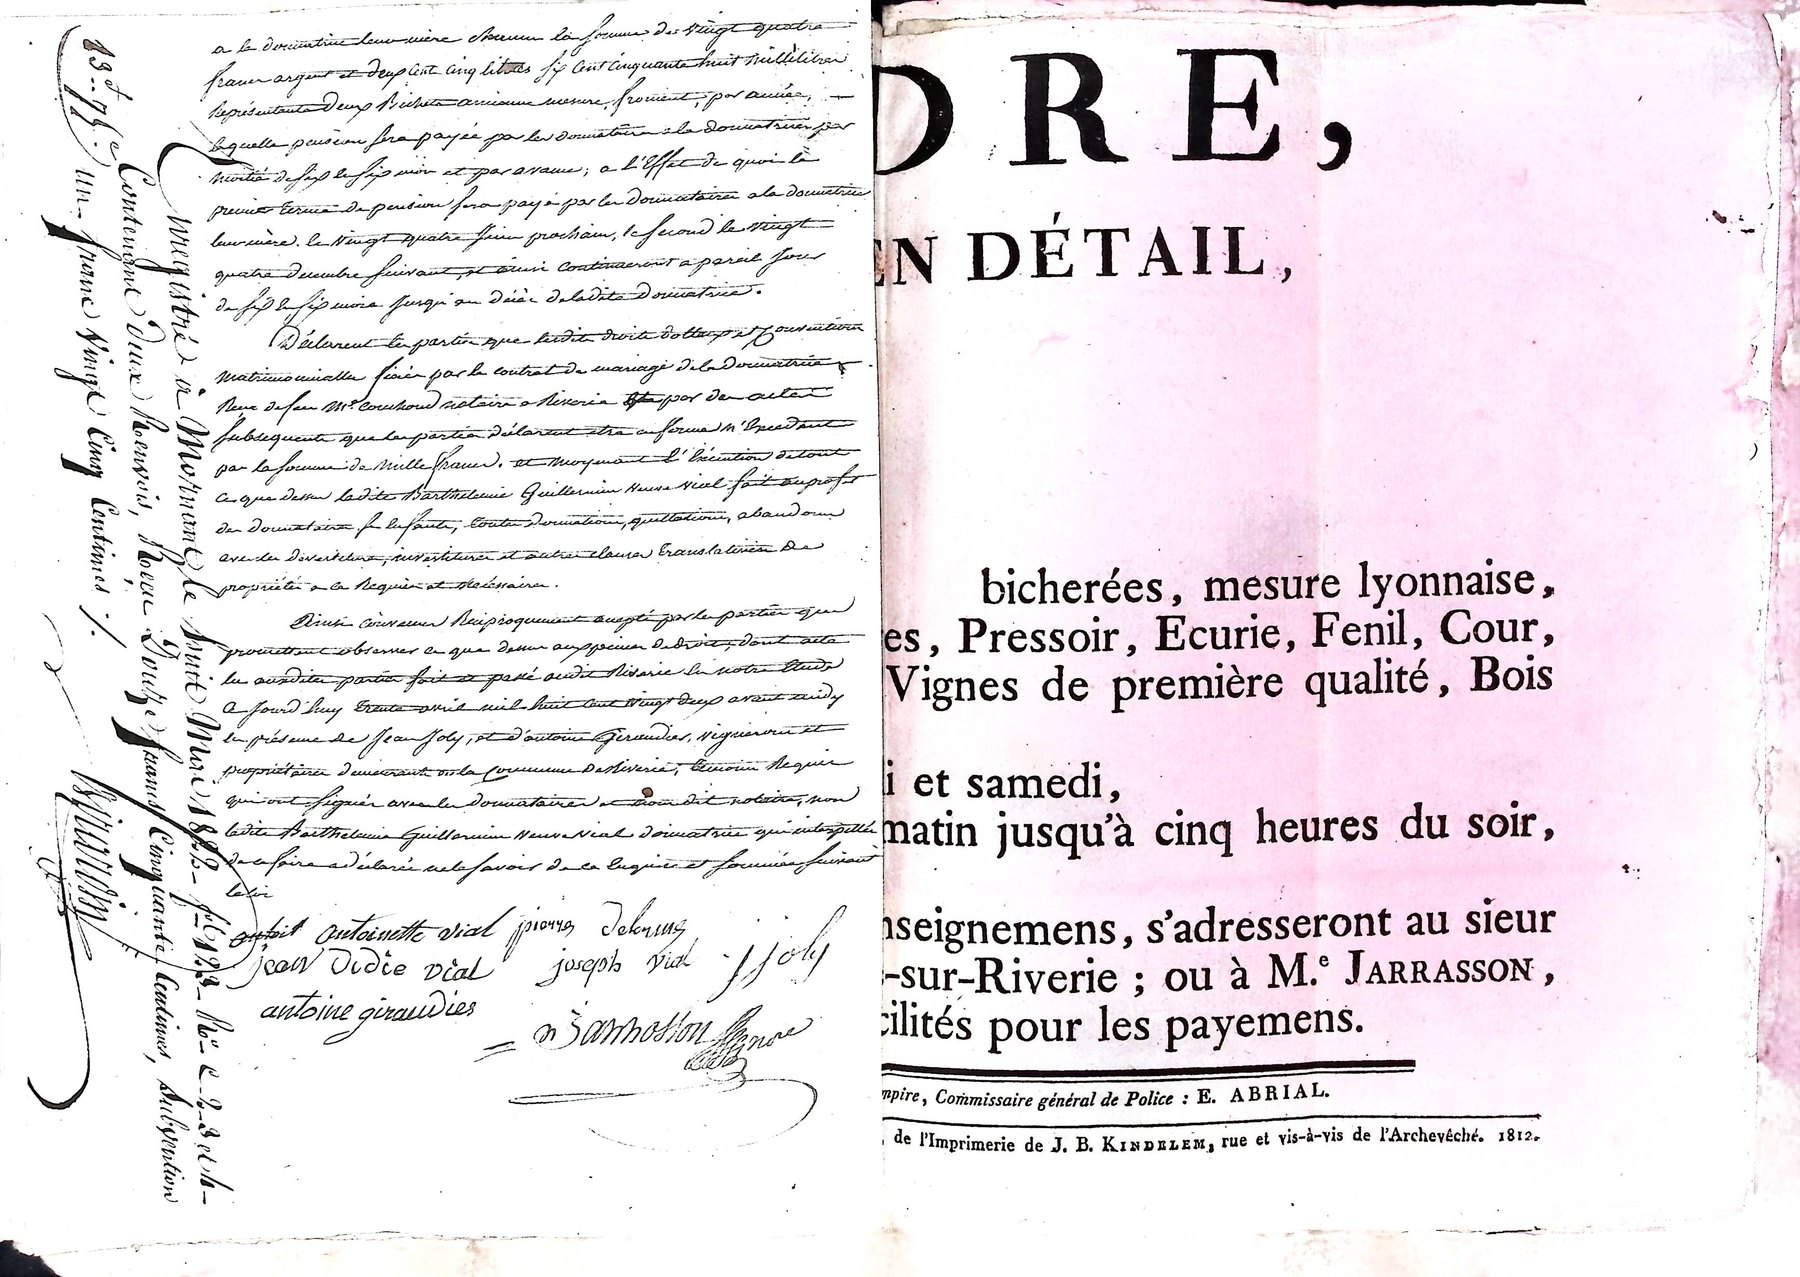 a la donnatrice leur mère chacun la somme de vingt quatre
francs argent et deux cent cinq litres six cent cinquante huit millilitres
Représentants deux Bichets ancienne mesure, froment, par année,
laquelle pension sera payée par les donnataires a la donnatrice par
moitié de six en six mois et par avance ; a l'Effet de quoi le
premier terme de pension sera payé par les donnataires a la donnatrice
leur mère. le vingt quatre juin prochain, le second le vingt
quatre decembre suivant, et ainsi continueront a pareil jour
de six en six mois jusqu'au décès de ladite donnatrice.
Déclarent les parties que lesdits droits dotaux et Conventions
matrimonialles fixés par le contrat de mariage de la donnatrice
Reçu de feu Me. Couchoud notaire a Riverie par des actes
subsequents que les parties déclarent être en forme n'Excedent
pas la somme de mille francs. et moyenant l'Exécution de tout
ce que dessus ladite Barthelemie Guillermin veuve vial fait au profit
des donnataires ses Enfants, toutes donnations, quittations, abandons
avec les devestitures, investitures et autres clauses translatives de
propriété a ce Requises et nécessaires.
Ainsi convenu Réciproquement accepté par les parties qui
promettent observer ce que dessus aux peines de droit, dont acte
les ausdites parties fait et passé audit Riverie En notre Etude
A jourd'huy trente avril mil huit cent vingt deux avant midy
En présence de Jean Joly, et d'antoine Giraudies, vignerons et
propriétaires demeurant en la Commune de Riverie, temoins Requis
qui ont signés avec les donnataires et nous dit notaire, non
ladite Barthelemie Guillermin veuve vial donnatrice qui interpellée
de le faire a déclaré ne le savoir de ce enquise et sommée suivant
la loi
antoinette vial pierre delorme
jean Didie vial joseph vial j joly
antoine giraudies
Enregistré à Mornant le huit Mai 1822
Contenant deux Renvois, Reçu Douze francs Cinquante Centimes, Subvention
un franc Vingt Cinq Centimes ./.
DRE,
EN DÉTAIL,
bicherées, mesure lyonnaise,
es, Pressoir, Ecurie, Fenil, Cour,
Vignes de première qualité, Bois
i et samedi,
matin jusqu'à cinq heures du soir,
nseignemens, s'adresseront au sieur
-sur-Riverie ; ou à M.e JARRASSON,
cilités pour les payemens.
mpire, Commissaire général de Police : E. ABRIAL.
de l'Imprimerie de J. B. KINDELEM, rue et vis-à-vis de l'Archevêché. 1812.